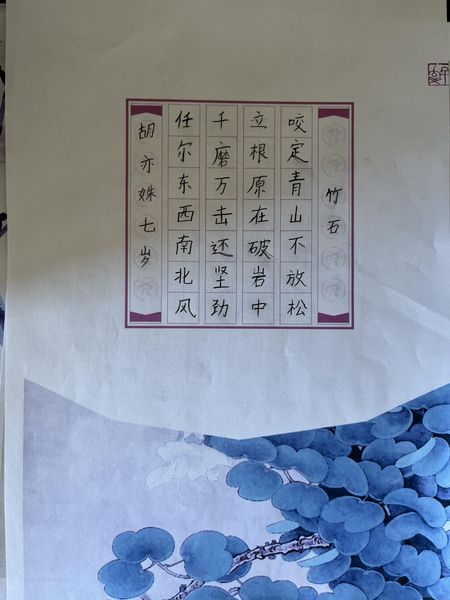 竹石
咬定青山不放松
立根原在破岩中
千磨万击还坚劲
任尔东西南北风
胡亦姝七岁